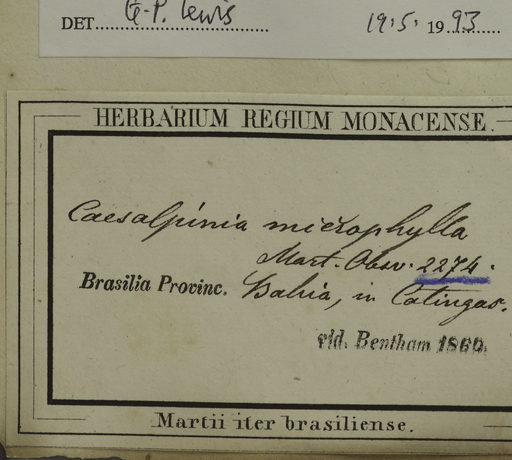 DET. G.P. Lewis 19.5. 1993
HERBARIUM REGIUM MONACENSE.
Caesalpinia microphylla
Mart. Obsv. 2274.
Brasilia Provinc. Bahia, in Catingas.
vid. Bentham 1860.
Martii iter brasiliense.